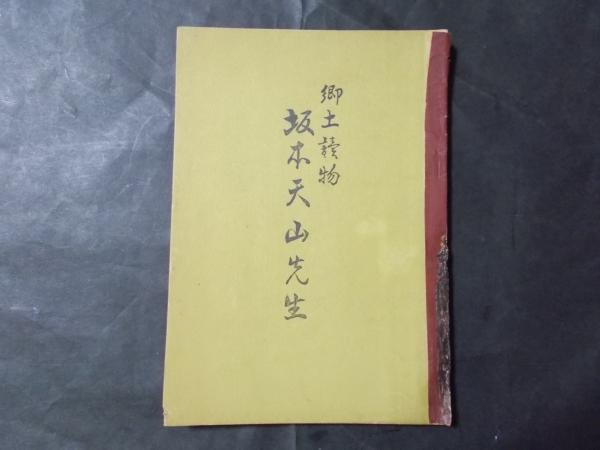 郷土讀物
坂本天山先生